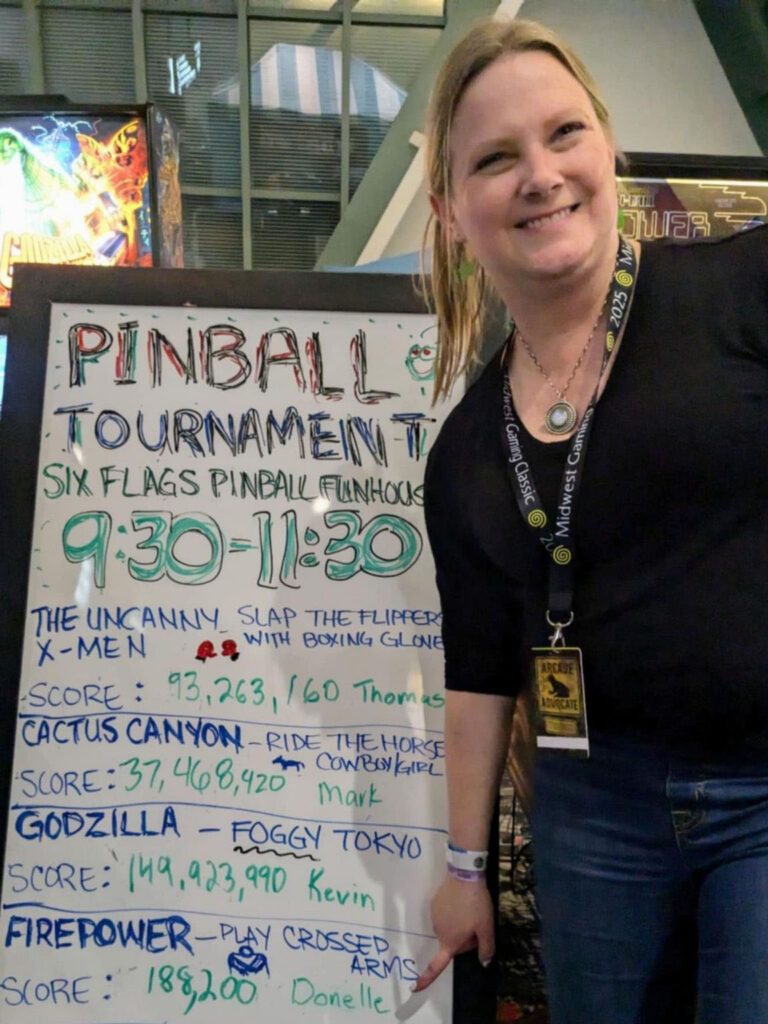 GODZILLA
POWER
PINBALL
TOURNAMENT
SIX FLAGS PINBALL FUNHOUS
9:30-11:30
THE UNCANNY X-MEN
SLAP THE FLIPPERS WITH BOXING GLOVE
SCORE: 93,263,160 Thomas
CACTUS CANYON - RIDE THE HORSE
COWBOY/GIRL
SCORE: 37,468,420 Mark
GODZILLA - FOGGY TOKYO
SCORE: 149,923,990 Kevin
FIREPOWER - PLAY CROSSED
ARMS
SCORE: 188,200 Donelle
2025 Mi
Midwest Gaming Classic
Midwest Gaming
ARCADE
ADVOCATE